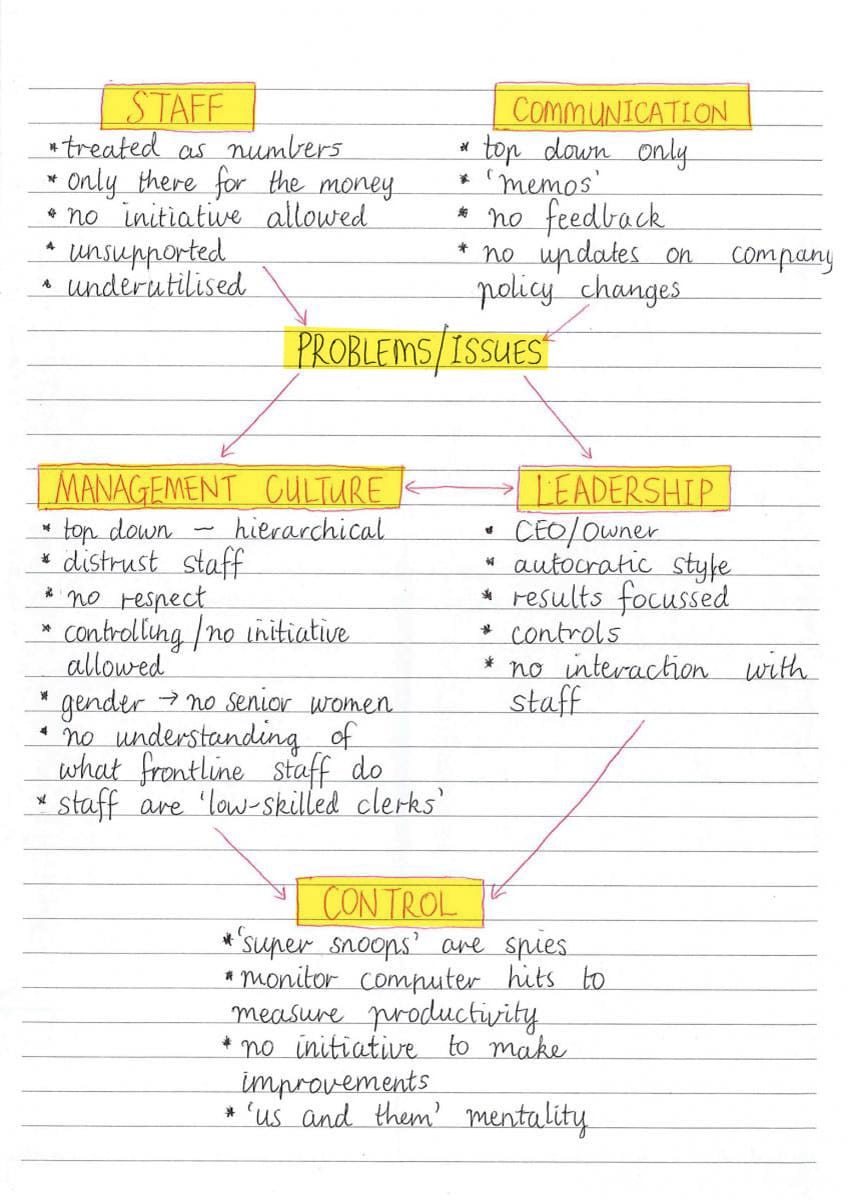 STAFF
* treated as numbers
* only there for the money
* no initiative allowed
* unsupported
* underutilised
COMMUNICATION
* top down only
* 'memos'
* no feedback
* no updates on company
policy changes
PROBLEMS/ISSUES
MANAGEMENT CULTURE
* top down – hierarchical
* distrust staff
* no respect
* controlling/no initiative
allowed
* gender → no senior women
* no understanding of
what frontline staff do
* staff are 'low-skilled clerks'
LEADERSHIP
* CEO/Owner
* autocratic style
* results focussed
* controls
* no interaction with
staff
CONTROL
* 'super snoops' are spies
* monitor computer hits to
measure productivity
* no initiative to make
improvements
* 'us and them' mentality